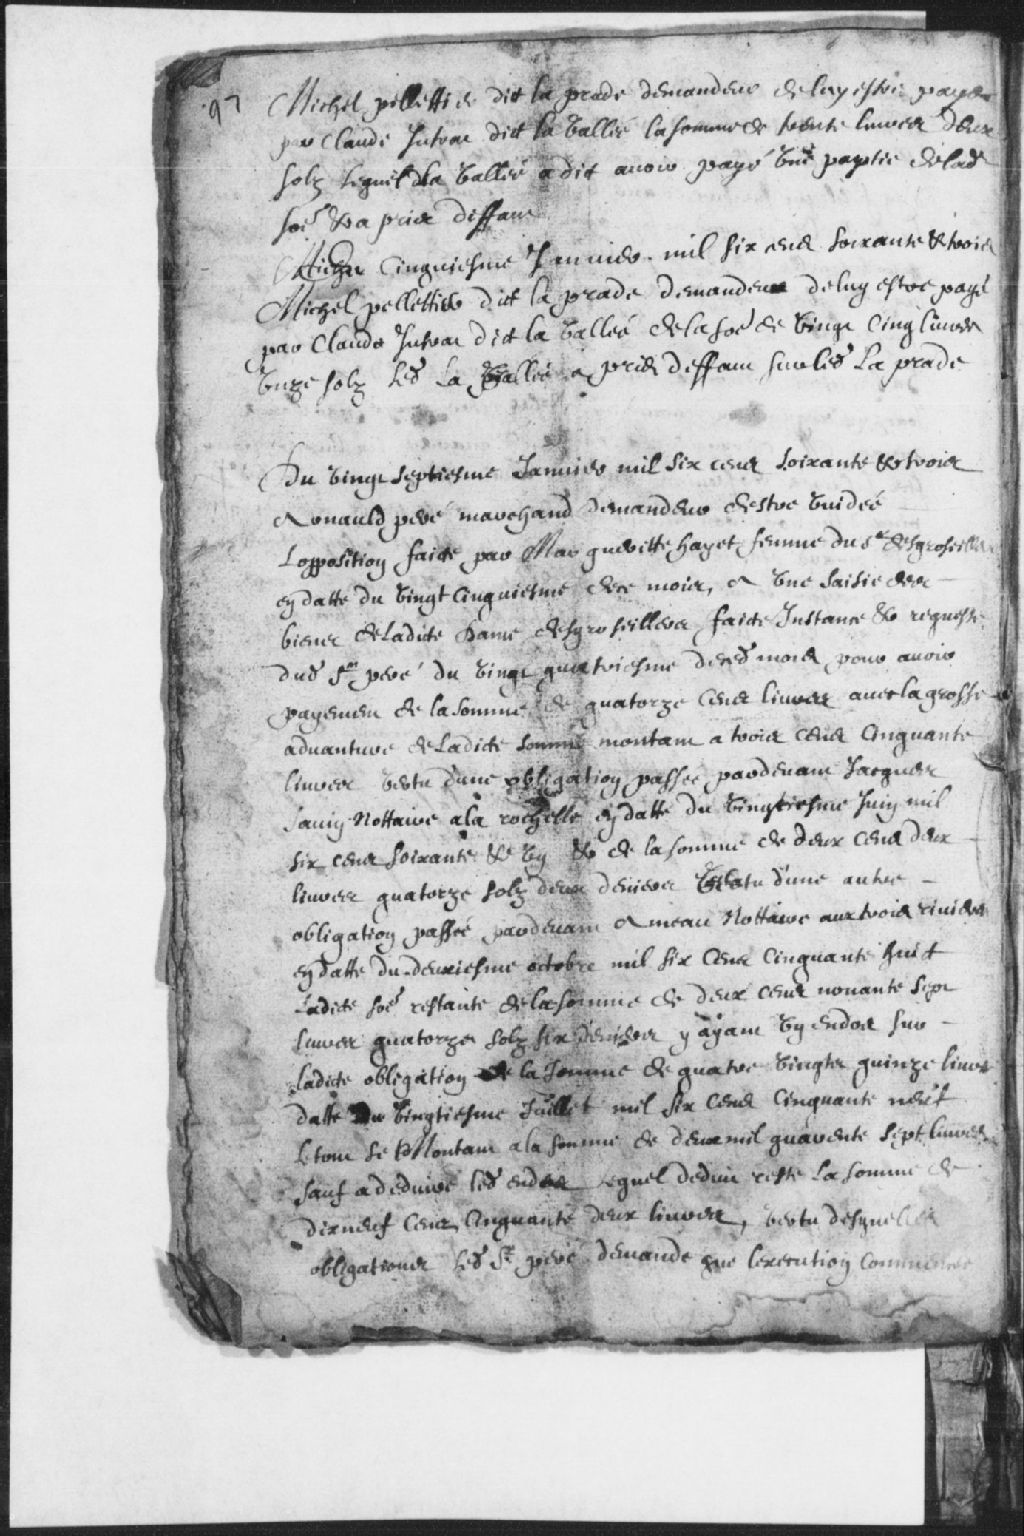 97
Michel pellettie dit la prade demandeur de luy estre payée
par Claude Jutrac dict la Vallée la somme de trente livres deux
solz lequel dla Vallée a dit avoir payé une partie de lad
soe & a pris deffau
Cinquiesme Janvier mil six cens soixante & trois
Michel pellettier dit la prade demandeur de luy estre payé
par Claude Jutrac dit la Vallée de la soe de vingt Cinq livres
unze solz led La Vallée a pris deffaut sur led La prade
Du vingt septiesme Janvier mil six cens soixante & trois
Arnauld peré marchand demandeur destre vuidée
Lopposition faicte par Margueritte hayet femme du sr desgroseillers
en datte du vingt Cinquiesme de ce mois, & une saisie des
biens de Ladite Dame desgroseillers faicte Instance & requeste
dud Sr peré du vingt quatriesme de ced mois pour avoir
payemen de la somme de quatorze Cens livres avec la grosse
advanture de Ladicte somme montant a trois cens Cinquante
livres vertu d'une obligation passée pardevant Jacques
Savin Nottaire a la rochelle en datte du vingtiesme Juin mil
six cens soixante & un & de la somme de deux cens deux
livres quatorze solz deux deniers vertu d'une autre
obligation passée pardevant Ameau Nottaire aux trois rivieres
en datte du deuxiesme octobre mil six Cens Cinquante huict
Ladite soe restante de la somme de deux cens nonante sept
livres quatorze solz six deniers y ayant un endos sur
ladicte obligation de la somme de quatre vingts quinze livres
datte du vingtiesme Juillet mil six Cens Cinquante neuf
Le tout se Montant a la somme de deux mil quarente sept livres
sauf a deduire led endos lequel deduit reste La somme de
dixneuf Cens Cinquante deux livres, vertu desquelles
obligations led Sr peré demande que lexecution Commencée